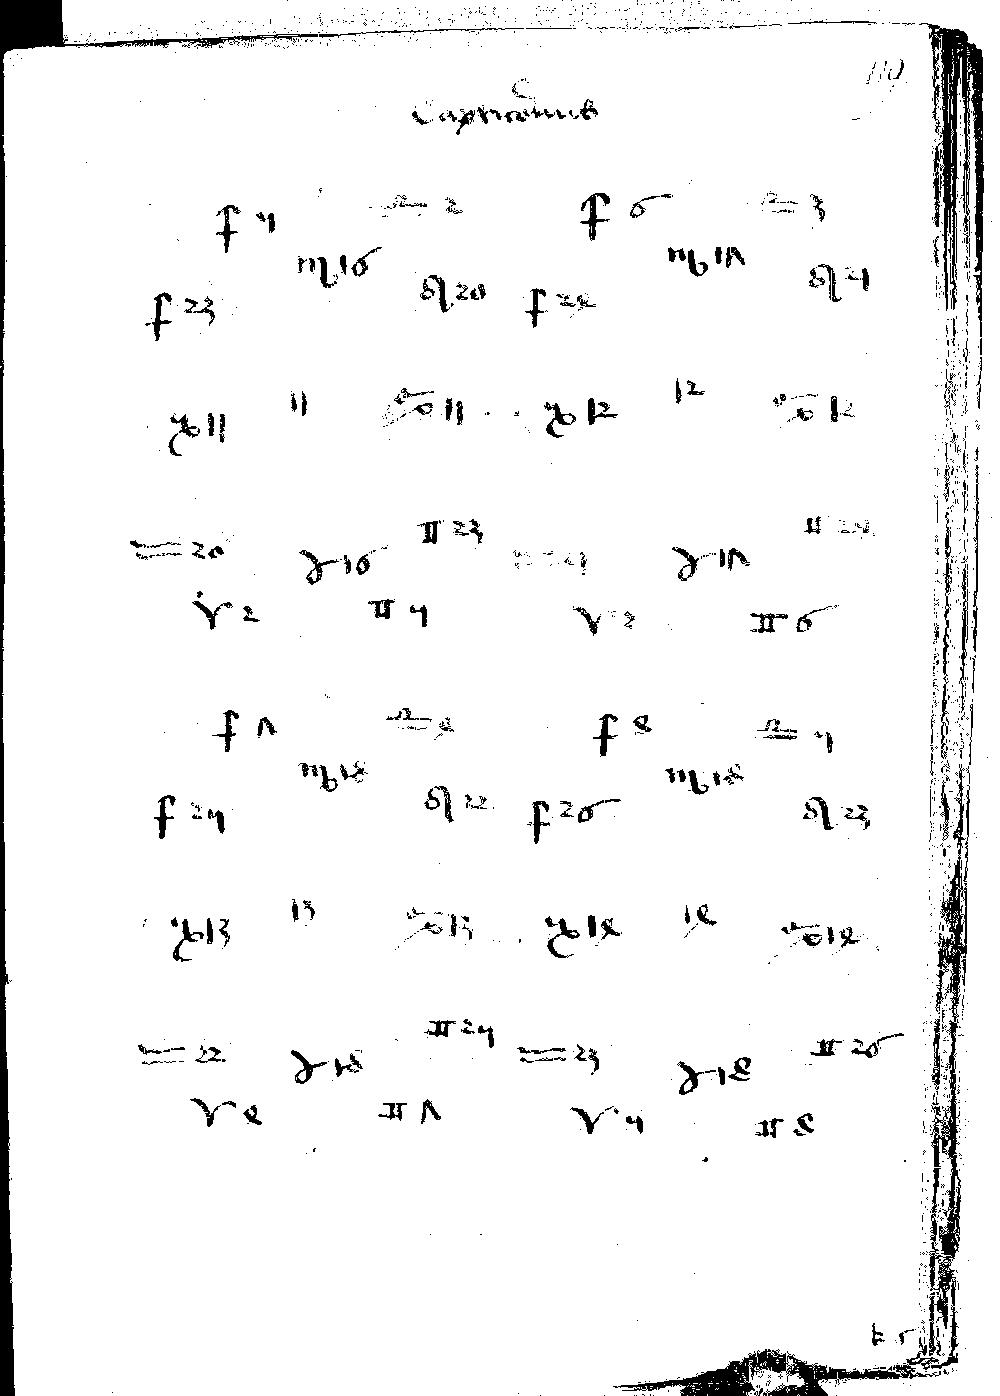 Capricornus
♐ 5 ♎ 2 ♐ 6 ♎ 3
♏ 16 ♏ 17
♐ 23 ♌ 20 ♐ 24 ♌ 21
♑ 11 11 ♋ 11 ♑ 12 12 ♋ 12
♒ 20 ♓ 16 ♊ 23 ♒ 21 ♓ 17 ♊ 24
♈ 2 ♊ 5 ♈ 3 ♊ 6
♐ 7 ♎ 4 ♐ 8 ♎ 5
♏ 18 ♏ 18
♐ 25 ♌ 22 ♐ 26 ♌ 23
♑ 13 13 ♋ 13 ♑ 14 14 ♋ 14
♒ 22 ♓ 18 ♊ 25 ♒ 23 ♓ 18 ♊ 26
♈ 4 ♊ 7 ♈ 5 ♊ 8